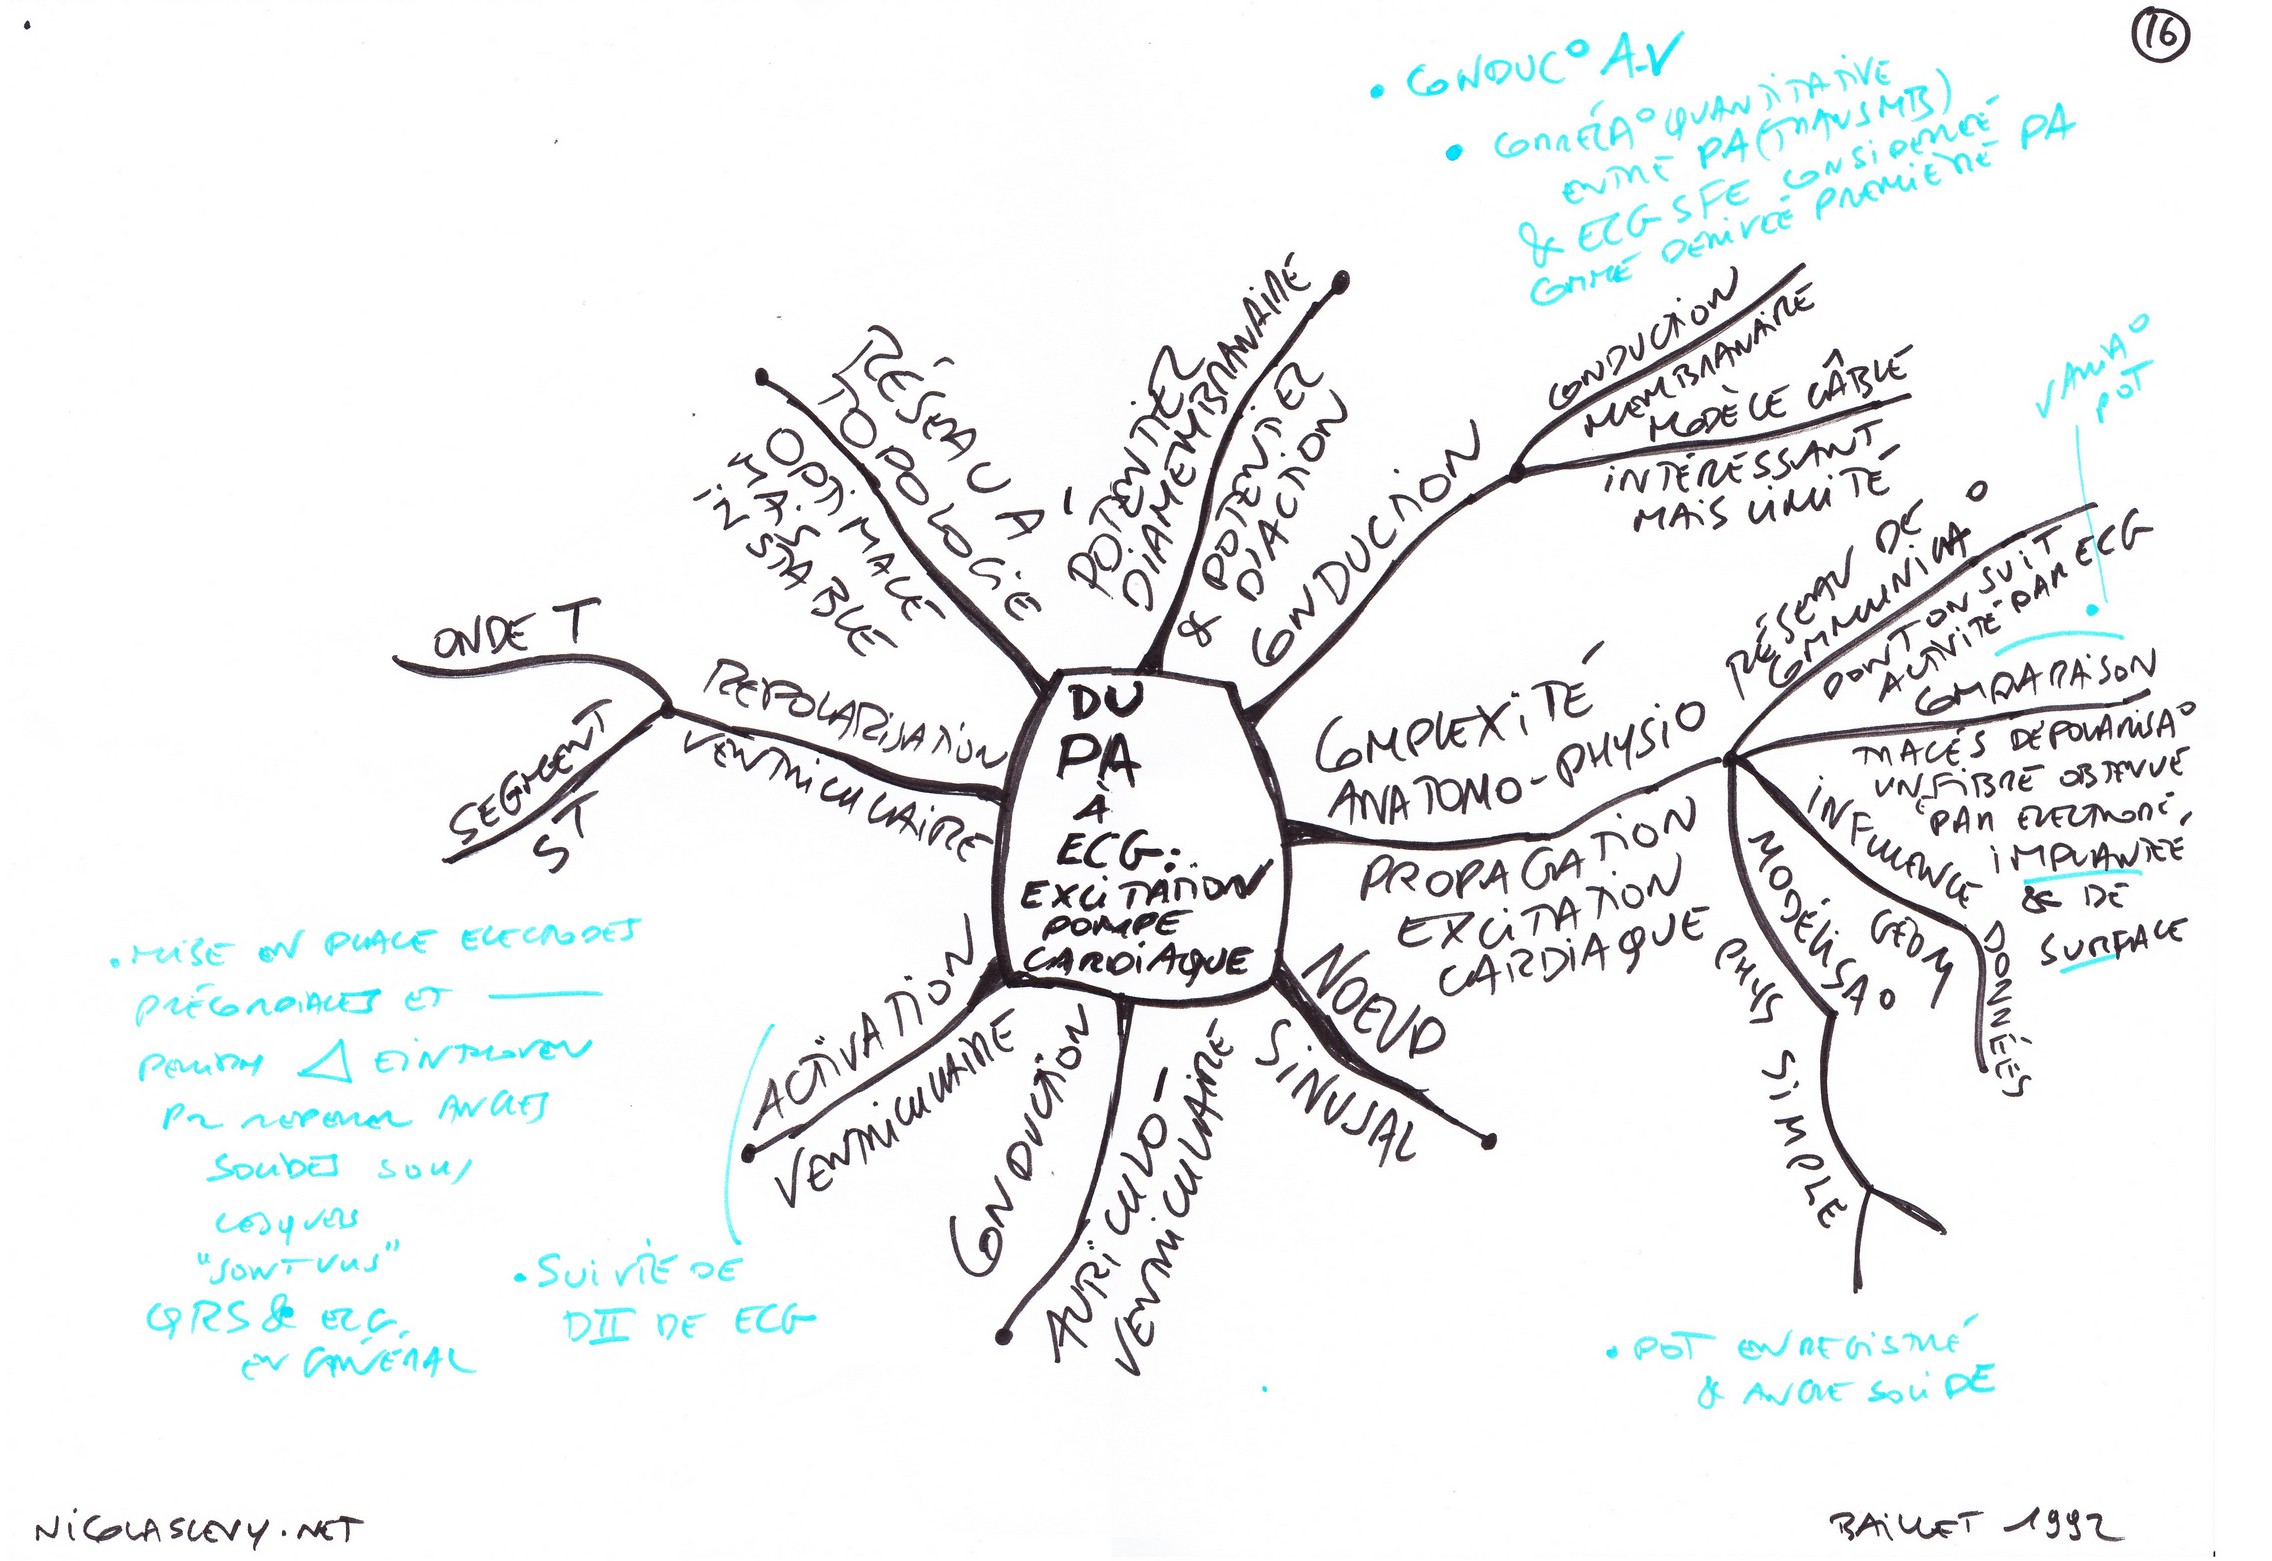 16
• CONDUC° A-V
• CORRÉLA° QUANTITATIVE
ENTRE PA (TRANSMB)
& ECG SFE CONSIDÉRÉ
COMME DÉRIVÉE PREMIÈRE PA
POTENTIEL
DIAMEMBRANAIRE
& POTENTIEL
D'ACTION
CONDUCTION
CONDUCTION
MEMBRANAIRE
MODÈLE CÂBLE
INTÉRESSANT
MAIS LIMITÉ
VARIA°
POT
COMPLEXITÉ
ANATOMO-PHYSIO
PROPAGATION
EXCITATION
CARDIAQUE
RÉSEAU DE
COMMUNICA°
DONT ON SUIT
ACTIVITÉ PAR ECG
COMPARAISON
TRACÉS DÉPOLARISA°
UNE FIBRE OBTENUE
PAR ELECTRODE
IMPLANTÉE
& DE
SURFACE
INFLUENCE GEOM
DONNÉES
MODÉLISA°
PHYS SIMPLE
• POT ENREGISTRÉ
& ANGLE SOLIDE
NOEUD
SINUSAL
CONDUCTION
AURICULO-
VENTRICULAIRE
ACTIVATION
VENTRICULAIRE
• SUIVIE DE
DII DE ECG
REPOLARISATION
VENTRICULAIRE
ONDE T
SEGMENT
ST
RÉSEAU À
TOPOLOGIE
OPTIMALE
MAIS
INSTABLE
DU
PA
À
ECG:
EXCITATION
POMPE
CARDIAQUE
• MISE EN PLACE ELECRODES
PRÉCORDIALES ET —
POUR △ EINTHOVEN
PR REPERER ANGLES
SOLIDES SOUS
LESQUELS
"SONT VUS"
QRS & ECG
EN GÉNÉRAL
NICOLASLEVY.NET
BAILLET 1992